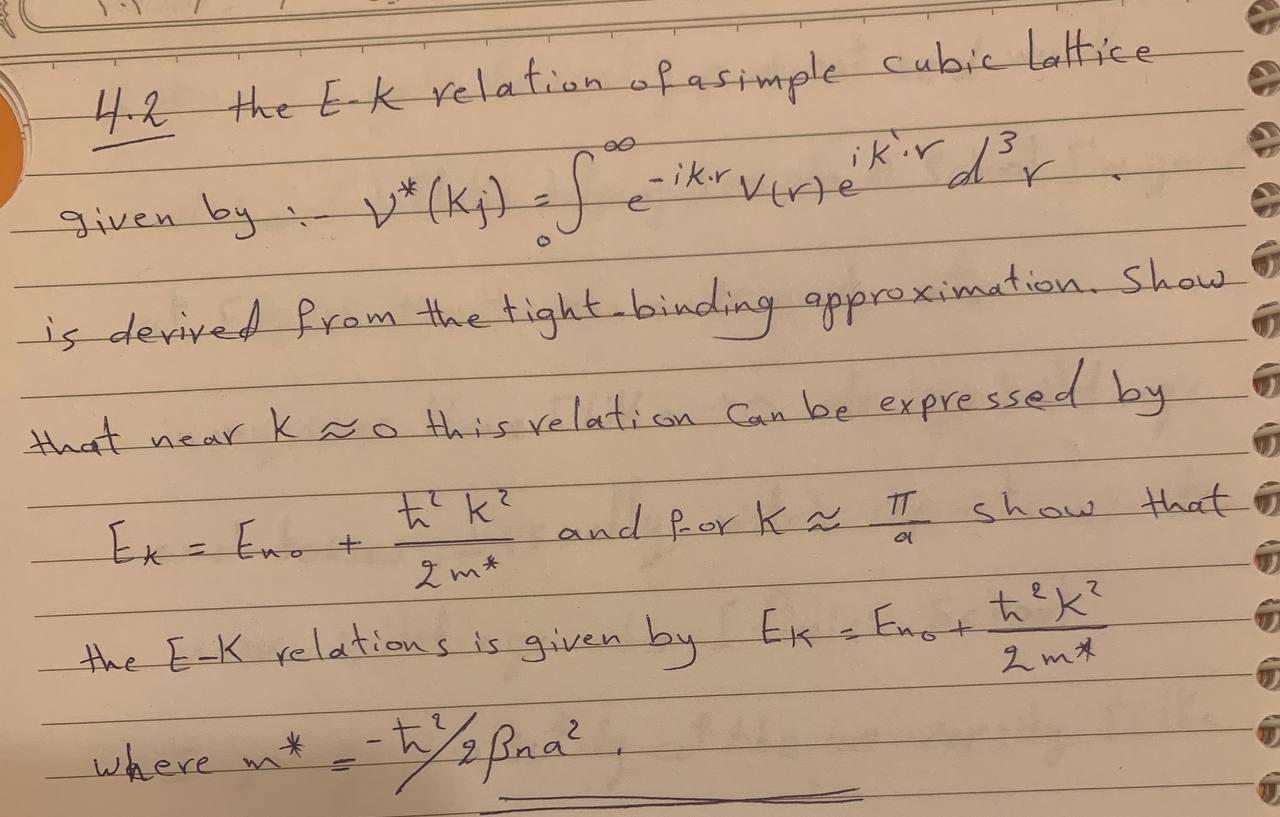 4.2 the E-K relation of a simple cubic Lattice
given by :- V*(Kj) = ∫₀^∞ e^{-ik·r} V(r) e^{ik'·r} d³r .
is derived from the tight-binding approximation. Show
that near K ≈ 0 this relation Can be expressed by
E_K = E_{n0} + ħ²k²/2m* and for K ≈ π/a show that
the E-K relations is given by E_K = E_{n0} + ħ²k²/2m*
where m* = -ħ²/2βna² .